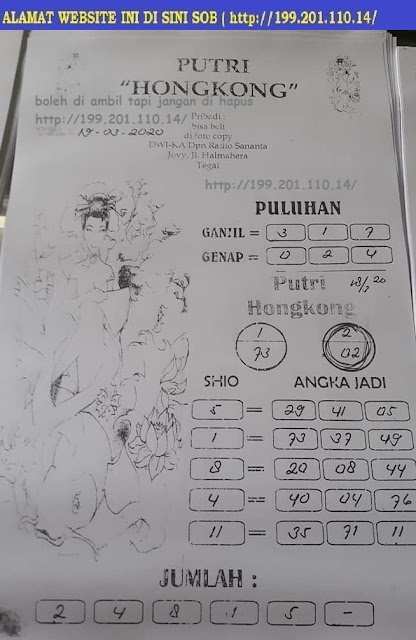 ALAMAT WEBSITE INI DI SINI SOB ( http://199.201.110.14/
PUTRI
"HONGKONG"
boleh di ambil tapi jangan di hapus
http://199.201.110.14/
Pribadi :
TGL. 19-03-2020
bisa beli
di foto copy
DWI-KA Dpn Radio Sananta
Jovy, Jl. Halmahera
Tegal
http://199.201.110.14/
PULUHAN
GANJIL = 3 1 7
GENAP = 0 2 4
Putri
Hongkong
1 2
73 02
SHIO ANGKA JADI
5 = 29 41 05
1 = 73 37 49
8 = 20 08 44
4 == 40 04 76
11 = 35 71 11
JUMLAH :
2 4 8 1 5 -